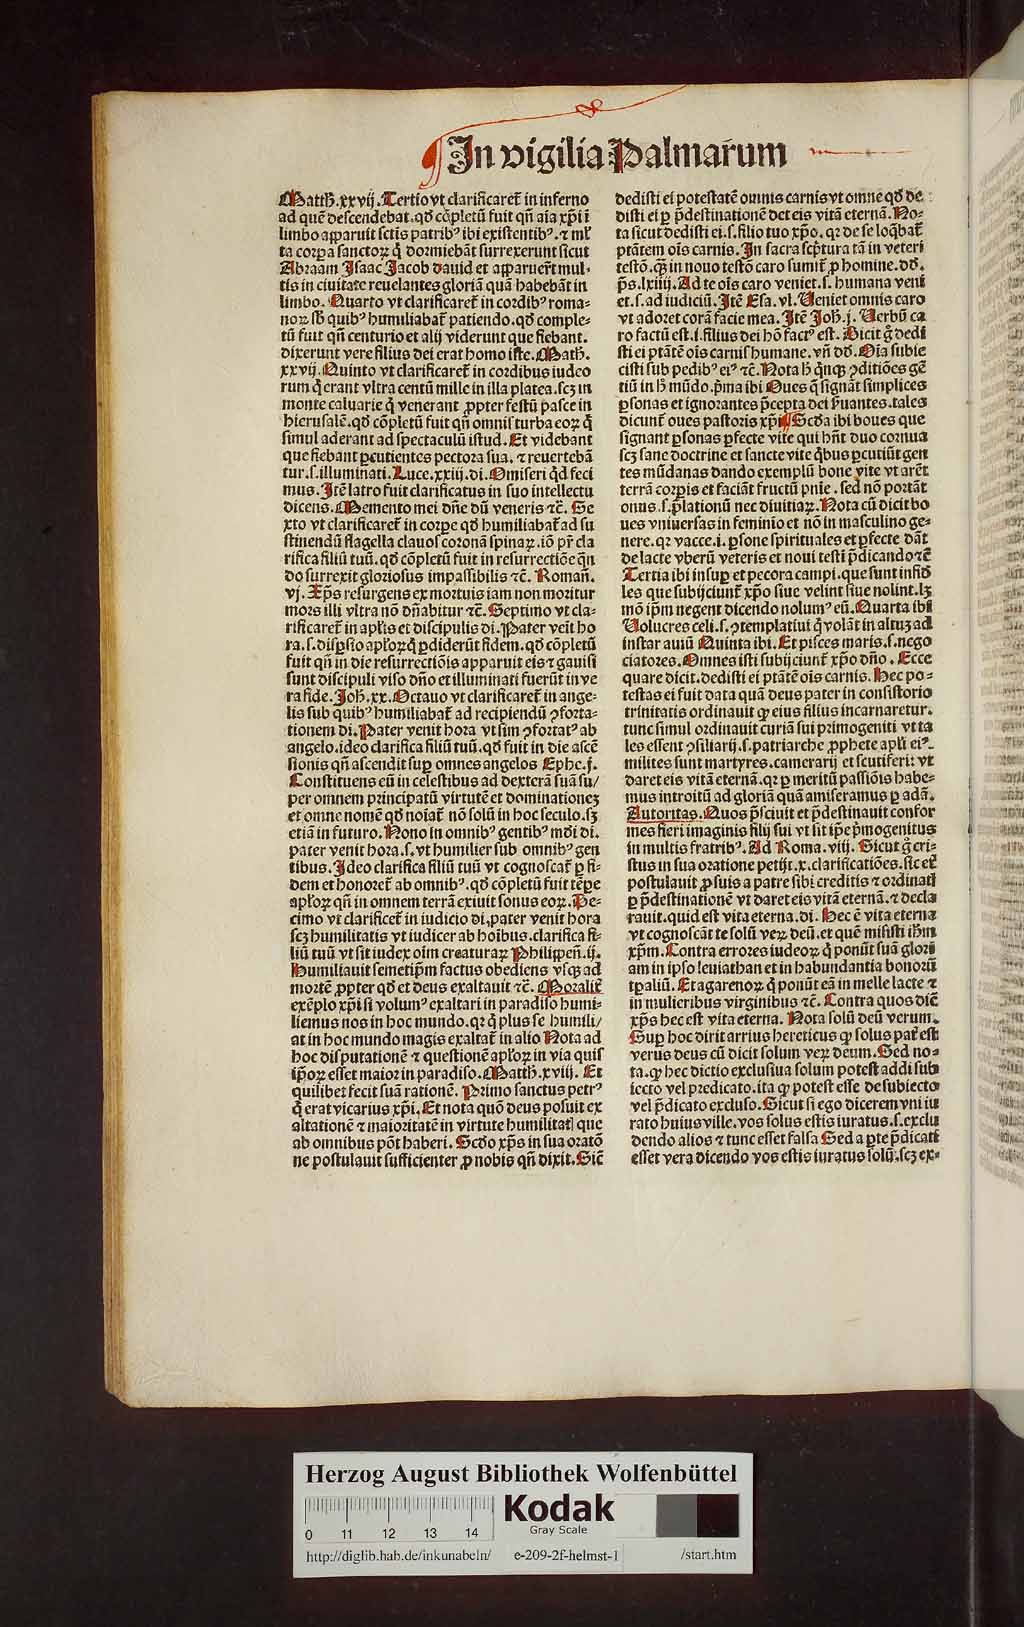 In vigilia Palmaꝝum
Matth̄. xxvij. Tertio vt clarificaret̄ in inferno
ad quē descendebat. qd̄ cōpletū fuit qn̄ aīa xp̄i ī
limbo apparuit sctīs patribꝰ ibi existentibꝰ. ⁊ ml̄
ta corpa sanctoꝝ q̄ dormiebāt surrexerunt sicut
Abraam Isaac Jacob dauid et apparuerūt mul-
tis in ciuitate reuelantes gloriā quā habebāt in
limbo. Quarto vt clarificaret̄ in cordibꝰ roma-
noꝝ sb̄ quibꝰ humiliabat̄ patiendo. qd̄ comple-
tū fuit qn̄ centurio et alij viderunt que fiebant.
dixerunt vere filius dei erat homo iste. Math̄.
xxvij. Quinto vt clarificaret̄ in cordibus iudeo
rum q̄ erant vltra centū mille in illa platea. scꝫ in
monte caluarie q̄ venerant ꝓpter festū pasce in
hierusalē. qd̄ cōpletū fuit qn̄ omnis turba eoꝝ q̄
simul aderant ad spectaculū istud. Et videbant
que fiebant ꝑcutientes pectora sua. ⁊ reuertebā
tur. s. illuminati. Luce. xxiij. di. Omiseri qd̄ feci
mus. Itē latro fuit clarificatus in suo intellectu
dicens. Memento mei dn̄e dū veneris ⁊c̄. Se
xto vt clarificaret̄ in corpe qd̄ humiliabat̄ ad su
stinendū flagella clauos coronā spinaꝝ. iō pr̄ cla
rifica filiū tuū. qd̄ cōpletū fuit in resurrectiōe qn̄
do surrexit gloriosus impassibilis ⁊c̄. Roman̄.
vj. Xp̄s resurgens ex mortuis iam non moritur
mors illi vltra nō dn̄abitur ⁊c̄. Septimo vt cla-
rificaret̄ in apl̄is et discipulis di. Pater veīt ho
ra. s. disꝑsio apl̄oꝝ q̄ ꝑdiderūt fidem. qd̄ cōpletū
fuit qn̄ in die resurrectiōis apparuit eis ⁊ gauisi
sunt discipuli viso dn̄o et illuminati fuerūt in ve
ra fide. Joh̄. xx. Octauo vt clarificaret̄ in ange-
lis sub quibꝰ humiliabat̄ ad recipiendū ꝯforta-
tionem di. Pater venit hora vt sim ꝯfortatꝰ ab
angelo. ideo clarifica filiū tuū. qd̄ fuit in die ascē
sionis qn̄ ascendit suꝑ omnes angelos Ephe. j.
Constituens eū in celestibus ad dexterā suā su/
per omnem principatū virtutē et dominationeꝫ
et omne nomē qd̄ noīat̄ nō solū in hoc seculo. sꝫ
etiā in futuro. Nono in omnibꝰ gentibꝰ mdi di.
pater venit hora. s. vt humilier sub omnibꝰ gen
tibus. Ideo clarifica filiū tuū vt cognoscat̄ ꝑ fi-
dem et honoret̄ ab omnibꝰ. qd̄ cōpletū fuit tēpe
apl̄oꝝ qn̄ in omnem terrā exiuit sonus eoꝝ. De-
cimo vt clarificet̄ in iudicio di. pater venit hora
scꝫ humilitatis vt iudicer ab hoībus. clarifica fi-
liū tuū vt sit iudex oīm creaturaꝝ Philippen̄. ij.
Humiliauit semetip̄m factus obediens vsqꝫ ad
mortē ꝓpter qd̄ et deus exaltauit ⁊c̄. Moralit̄
exēplo xp̄i si volumꝰ exaltari in paradiso humi-
liemus nos in hoc mundo. qꝛ q̄ plus se humili/
at in hoc mundo magis exaltat̄ in alio Nota ad
hoc disputationē ⁊ questionē apl̄oꝝ in via quis
ip̄oꝝ esset maior in paradiso. Matth̄. xviij. Et
quilibet fecit suā rationē. Primo sanctus petrꝰ
q̄ erat vicarius xp̄i. Et nota quō deus posuit ex
altationē ⁊ maioritatē in virtute humilitatl̄ que
ab omnibus pōt haberi. Scd̄o xp̄s in sua oratō
ne postulauit sufficienter ꝓ nobis qn̄ dixit. Sic̄
dedisti ei potestatē omnis carnis vt omne qd̄ de
disti ei ꝑ p̄destinationē det eis vitā eternā. No-
ta sicut dedisti ei. s. filio tuo xp̄o. qꝛ de se loq̄bat̄
ptātem oīs carnis. In sacra scp̄tura tā in veteri
testō. qꝫ in nouo testō caro sumit̄ ꝓ homine. dō.
p̄s. lxiiij. Ad te oīs caro veniet. s. humana veni
et. s. ad iudiciū. Itē Esa. vl. Ueniet omnis caro
vt adoret corā facie mea. Itē Joh̄. j. Uerbū ca
ro factū est. i. filius dei hō factꝰ est. Dicit g̊ dedi
sti ei ptātē oīs carnis humane. vn̄ dō. Oīa subie
cisti sub pedibꝰ eiꝰ ⁊c̄. Nota h̄ qnqꝫ ꝯditiōes gē
tiū in h̄ mūdo. p̄ma ibi Oues q̄ signāt simplices
ꝑsonas et ignorantes p̄cepta dei ẜuantes. tales
dicunt̄ oues pastoris xp̄i ¶ Scd̄a ibi boues que
signant ꝑsonas ꝑfecte vite qui hn̄t duo cornua
scꝫ sane doctrine et sancte vite q̄bus ꝑcutiūt gen
tes mūdanas dando exemplū bone vite vt arēt
terrā corpis et faciāt fructū pnīe. sed nō portāt
onus. s. p̄lationū nec diuitiaꝝ. Nota cū dicit bo
ues vniuersas in feminio et nō in masculino ge-
nere. qꝛ vacce. i. ꝑsone spirituales et ꝑfecte dāt
de lacte vberū veteris et noui testi p̄dicando ⁊c̄
Tertia ibi insuꝑ et pecora campi. que sunt infid̄
les que subijciunt̄ xp̄o siue velint siue nolint. lꝫ
mō ip̄m negent dicendo nolumꝰ eū. Quarta ibi
Uolucres celi. s. ꝯtemplatiui q̄ volāt in altuꝫ ad
instar auiū Quinta ibi. Et pisces maris. s. nego
ciatores. Omnes isti subijciunt̄ xp̄o dn̄o. Ecce
quare dicit. dedisti ei ptātē oīs carnis. Hec po-
testas ei fuit data quā deus pater in consistorio
trinitatis ordinauit ꝙ eius filius incarnaretur.
tunc simul ordinauit curiā sui primogeniti vt ta
les essent ꝯsiliarij. s. patriarche ꝓphete apl̄i eiꝰ.
milites sunt martyres. camerarij et scutiferi: vt
daret eis vitā eternā. qꝛ ꝑ meritū passiōis habe-
mus introitū ad gloriā quā amiseramus ꝑ adā.
Autoritas. Quos p̄sciuit et p̄destinauit confor
mes fieri imaginis filij sui vt sit ip̄e p̄mogenitus
in multis fratribꝰ. Ad Roma. viij. Sicut g̊ cri-
stus in sua oratione petijt. x. clarificatiōes. sic et̄
postulauit ꝓ suis a patre sibi creditis ⁊ ordinatl̄
ꝑ p̄destinationē vt daret eis vitā eternā. ⁊ decla
rauit. quid est vita eterna. di. Hec ē vita eterna
vt cognoscāt te solū veꝝ deū. et quē misisti ih̄m
xp̄m. Contra errores iudeoꝝ q̄ ponūt suā glori
am in ipso leuiathan et in habundantia bonorū
tꝑaliū. Et agarenoꝝ q̄ ponūt eā in melle lacte ⁊
in mulieribus virginibus ⁊c̄. Contra quos dic̄
xp̄s hec est vita eterna. Nota solū deū verum.
Suꝑ hoc dixit arrius hereticus ꝙ solus pat̄ est
verus deus cū dicit solum veꝝ deum. Sed no-
ta. ꝙ hec dictio exclusiua solum potest addi sub
iecto vel predicato. ita ꝙ potest esse de subiecto
vel p̄dicato excluso. Sicut si ego dicerem vni iu
rato huius ville. vos solus estis iuratus. s. exclu
dendo alios ⁊ tunc esset falsa Sed a ꝑte p̄dicati
esset vera dicendo vos estis iuratus solū. scꝫ ex-
Herzog August Bibliothek Wolfenbüttel
Kodak
Gray Scale
0 11 12 13 14
http://diglib.hab.de/inkunabeln/ e-209-2f-helmst-1 /start.htm